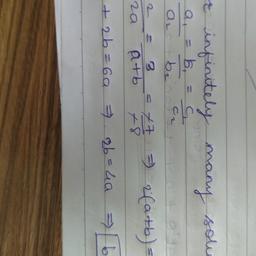 infinitely many solu
a₁/a₂ = b₁/b₂ = c₁/c₂
2/2a = 3/a+b = -7/-8 ⇒ 2(a+b) =
+ 2b = 6a ⇒ 2b = 4a ⇒ b